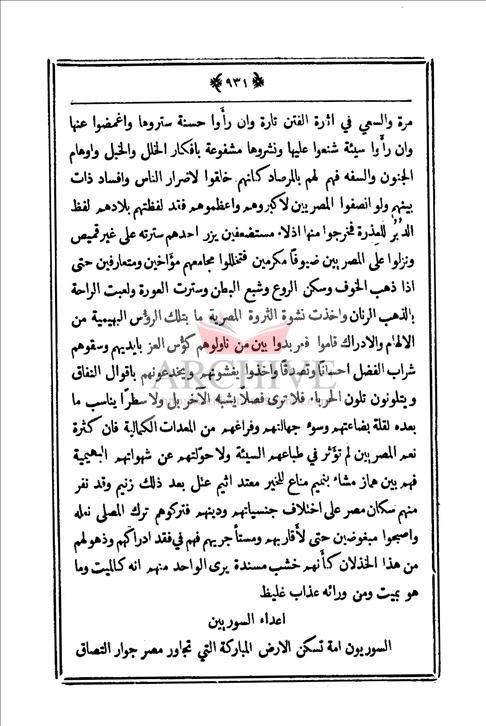 ﴿ ٩٣١ ﴾
مرة والسعي في اثرة الفتن تارة وان رأوا حسنة ستروها واغمضوا عنها
وان رأوا سيئة شنعوا عليها ونشروها مشفوعة بافكار الخلل والخبل واوهام
الجنون والسفه فهم لهم بالمرصاد كانهم خالقوا لاضرار الناس وافساد ذات
بينهم ولو انصفوا المصربين لاكبروهم واعظموهم فقد لفظتهم بلادهم لفظ
الدُبُر للعذرة فخرجوا منها اذلاء مستضعفين يزر احدهم سترته على غير قميص
ونزلوا على المصربين ضيوفًا مكرمين فتخللوا مجامعهم مؤاخين ومتعارفين حتى
اذا ذهب الخوف وسكن الروع وشبع البطن وسترت العورة ولعبت الراحة
بالذهب الرنان واخذت نشوة الثروة المصرية ما بتلك الرؤس البهيمية من
الالهام والادراك قاموا فعربدوا بين من ناولوهم كؤس العز بايديهم وسقوهم
شراب الفضل احسانًا وتصدقًا واخذوا يغشونهم ويخدعونهم باقوال النفاق
ويتلونون تلون الحرباء فلا ترى فصلا يشبه الآخر بل ولا سطرًا يناسب ما
بعده لقلة بضاعتهم وسوء جهالتهم وفراغهم من المعدات الكمالية فان كثرة
نعم المصربين لم تؤثر في طباعهم السيئة ولا حولتهم عن شهواتهم البهيمية
فهم بين هماز مشاء بنميم مناع للخير معتد اثيم عتل بعد ذلك زنيم وقد نفر
منهم سكان مصر على اختلاف جنسياتهم ودينهم فتركوهم ترك المصلى نعله
واصبحوا مبغوضين حتى لأقاربهم ومستأجريهم فهم في فقد ادراكهم وذهولهم
من هذا الخذلان كأنهم خشب مسندة يرى الواحد منهم انه كالميت وما
هو بميت ومن ورائه عذاب غليظ
اعداء السوربين
السوريون امة تسكن الارض المباركة التي تجاور مصر جوار التصاق
ARCHIVE